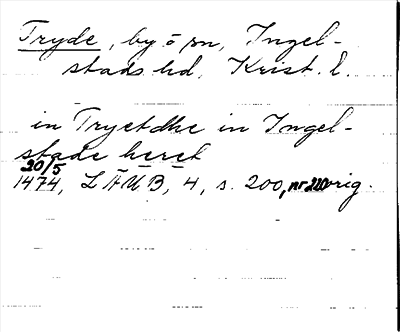 Tryde, by o sn, Ingel-
stads hd, Krist. l.
in Tryetdhe in Ingel-
stade heret
20/5
1474, LÄUB, 4, s. 200, nr 220 orig.